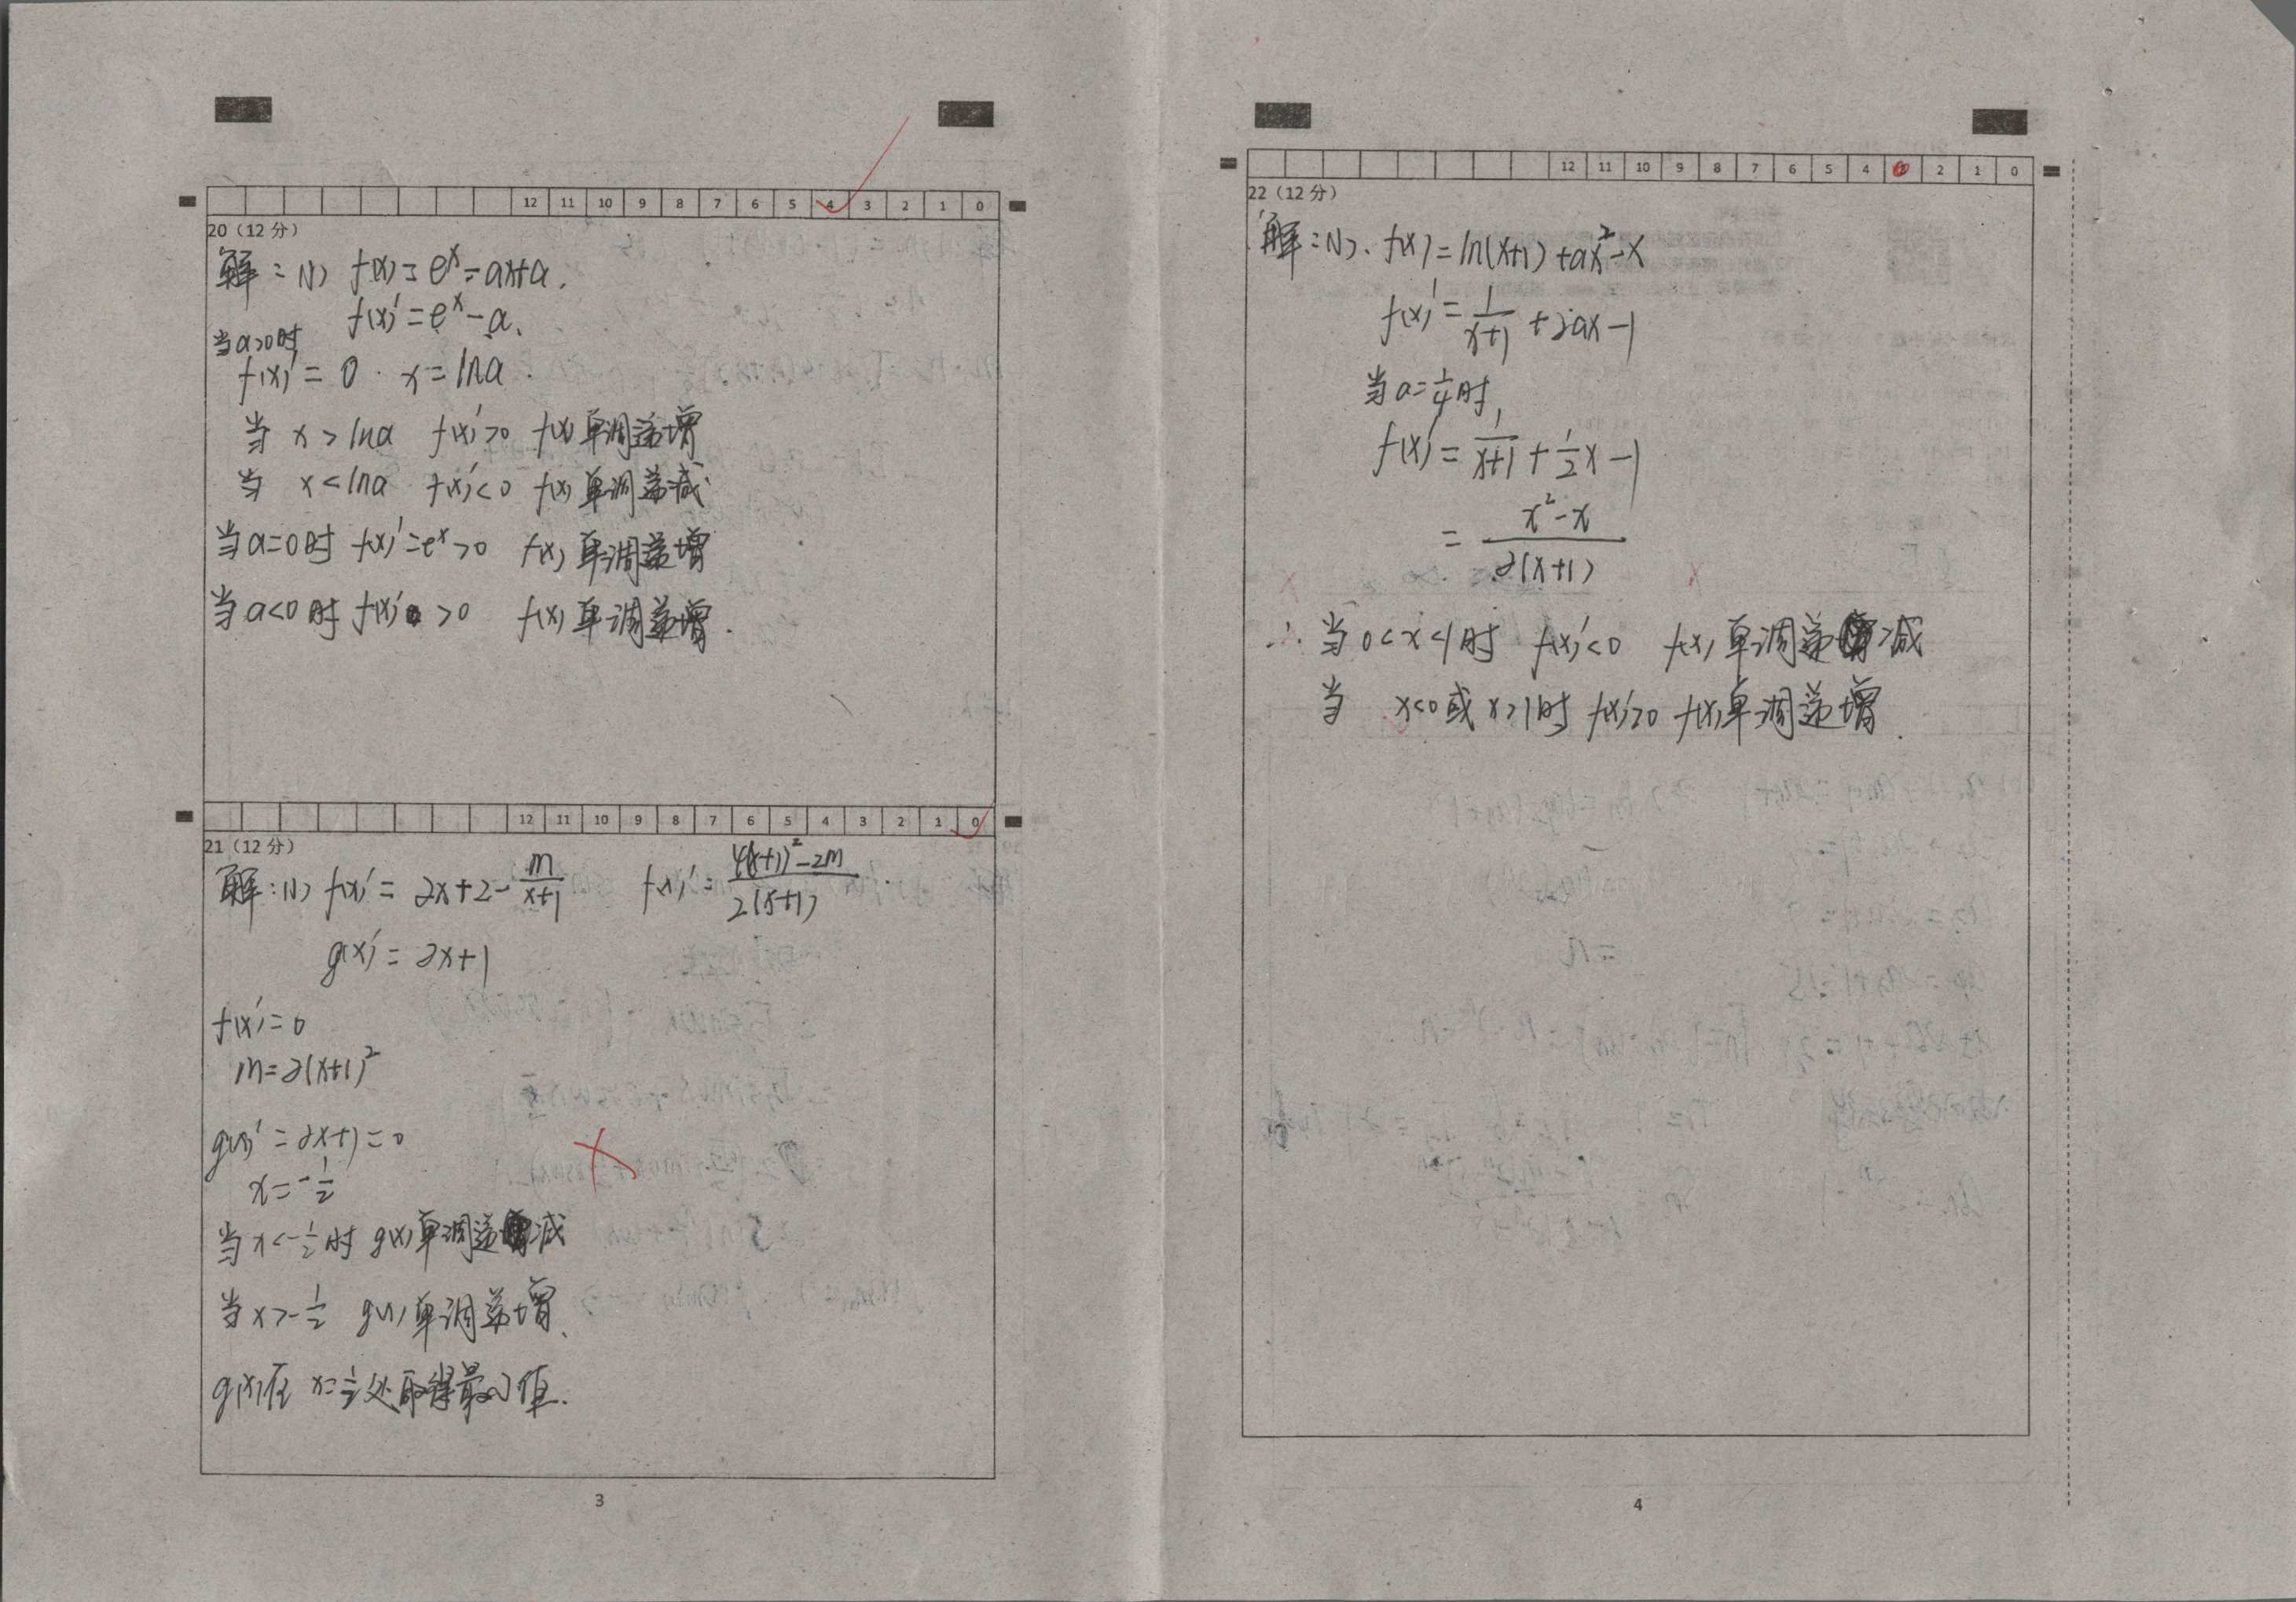 12 11 10 9 8 7 6 5 4 3 2 1 0
20（12 分）
解：(1) f(x)=e^x-ax+a.
f(x)'=e^x-a.
当a>0时
f(x)'=0. x=lna.
当 x>lna f(x)'>0 f(x)单调递增
当 x<lna f(x)'<0 f(x)单调递减
当a=0时 f(x)'=e^x>0 f(x)单调递增
当a<0时 f(x)'>0 f(x)单调递增.
12 11 10 9 8 7 6 5 4 3 2 1 0
21（12 分）
解：(1) f(x)'=2x+2-m/(x+1) f(x)'=(4(x+1)²-2m)/(2(x+1)).
g(x)'=2x+1
f(x)'=0
m=2(x+1)²
g(x)'=2x+1=0
x=-1/2
当x<-1/2时 g(x)单调递减
当x>-1/2 g(x)单调递增.
g(x)在 x=1/2处取得最小值.
3
12 11 10 9 8 7 6 5 4 2 1 0
22（12 分）
解：(1). f(x)=ln(x+1)+ax²-x
f(x)'=1/(x+1)+2ax-1
当a=1/4时,
f(x)'=1/(x+1)+1/2x-1
=(x²-x)/(2(x+1))
∴当0<x<1时 f(x)'<0 f(x)单调递减
当 x<0或x>1时 f(x)'>0 f(x)单调递增.
4